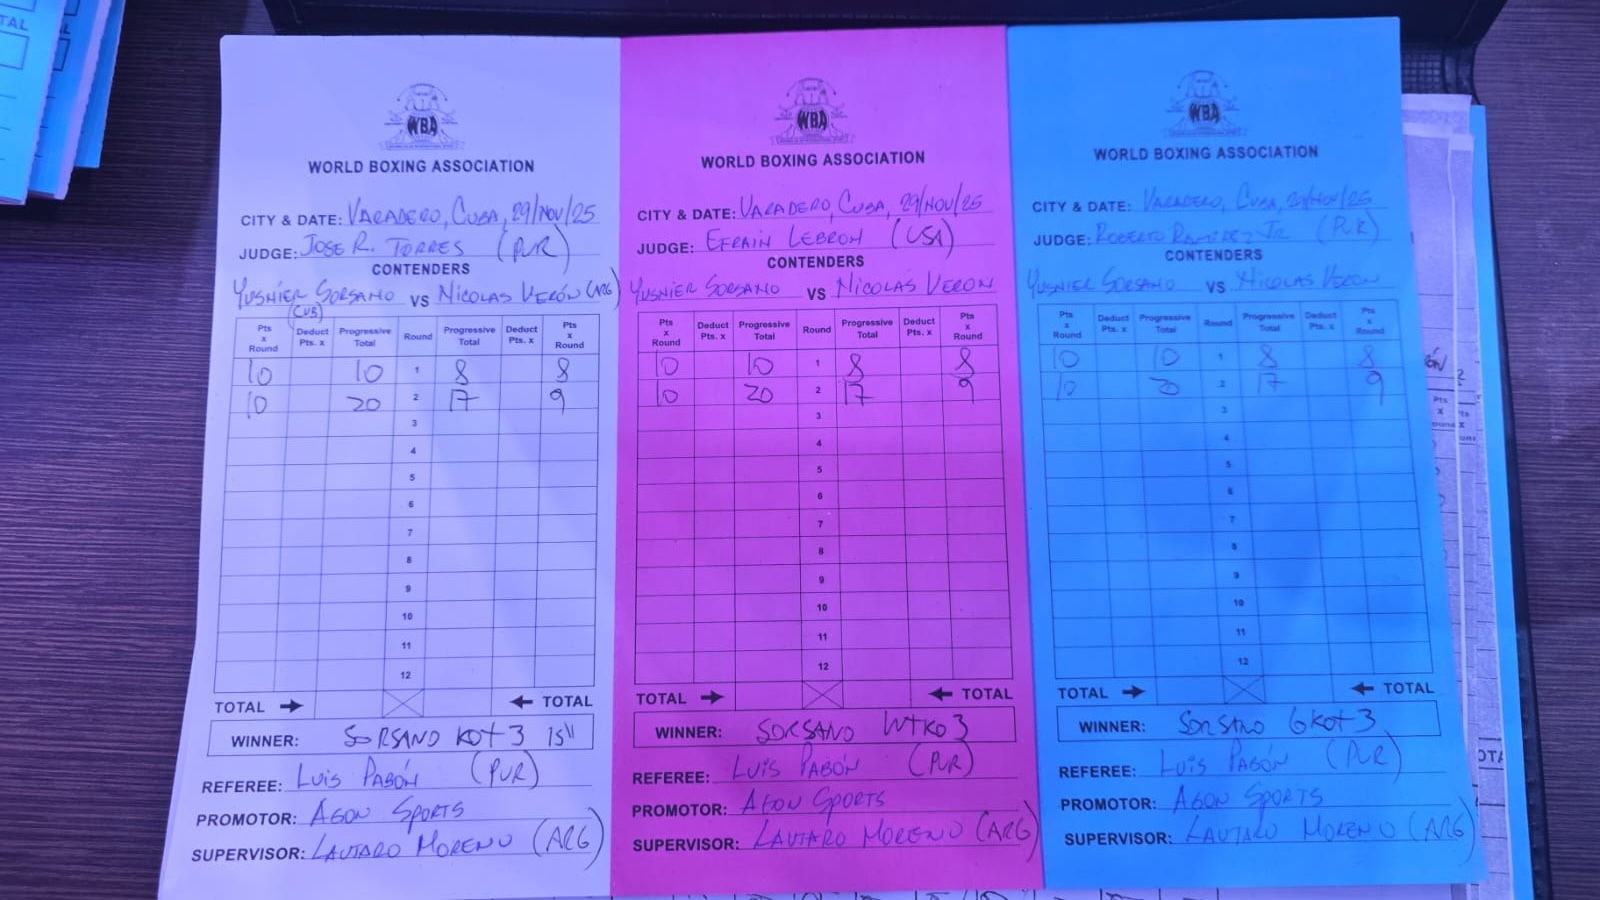 WBA
WORLD BOXING ASSOCIATION
CITY & DATE: VARADERO, CUBA, 29/NOV/25
JUDGE: JOSE R. TORRES (PUR)
CONTENDERS
YUSNIER SORSANO (CUB) VS NICOLAS VERÓN (ARG)
Pts x Round Deduct Pts. x Progressive Total Round Progressive Total Deduct Pts. x Pts x Round
10 10 1 8 8
10 20 2 17 9
3
4
5
6
7
8
9
10
11
12
TOTAL → ← TOTAL
WINNER: SORSANO KOT 3 15"
REFEREE: LUIS PABÓN (PUR)
PROMOTOR: AGON SPORTS
SUPERVISOR: LAUTARO MORENO (ARG)
WBA
WORLD BOXING ASSOCIATION
CITY & DATE: VARADERO, CUBA, 29/NOV/25
JUDGE: EFRAIN LEBRON (USA)
CONTENDERS
YUSNIER SORSANO VS NICOLAS VERON
Pts x Round Deduct Pts. x Progressive Total Round Progressive Total Deduct Pts. x Pts x Round
10 10 1 8 8
10 20 2 17 9
3
4
5
6
7
8
9
10
11
12
TOTAL → ← TOTAL
WINNER: SORSANO WTKO 3
REFEREE: LUIS PABÓN (PUR)
PROMOTOR: AGON SPORTS
SUPERVISOR: LAUTARO MORENO (ARG)
WBA
WORLD BOXING ASSOCIATION
CITY & DATE: VARADERO, CUBA, 29/NOV/25
JUDGE: ROBERTO RAMIREZ JR (PUR)
CONTENDERS
YUSNIER SORSANO VS NICOLAS VERON
Pts x Round Deduct Pts. x Progressive Total Round Progressive Total Deduct Pts. x Pts x Round
10 10 1 8 8
10 20 2 17 9
3
4
5
6
7
8
9
10
11
12
TOTAL → ← TOTAL
WINNER: SORSANO GKOT 3
REFEREE: LUIS PABÓN (PUR)
PROMOTOR: AGON SPORTS
SUPERVISOR: LAUTARO MORENO (ARG)